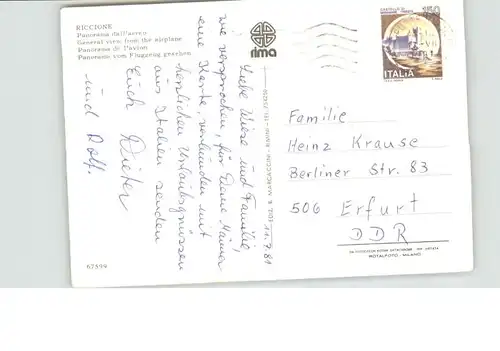 RICCIONE
Panorama dall'aereo
General view from the airplane
Panorama de l'avion
Panorama vom Flugzeug gesehen
rima
11.7.81
Liebe Wiese und Familie
wie versprochen, für Deine Männer
eine Karte, verbunden mit
herzlichen Urlaubsgrüssen
aus Italien senden
Euch Dieter
und Rolf.
67599
ITALIA
Familie
Heinz Krause
Berliner Str. 83
506 Erfurt
DDR
ROTALFOTO - MILANO